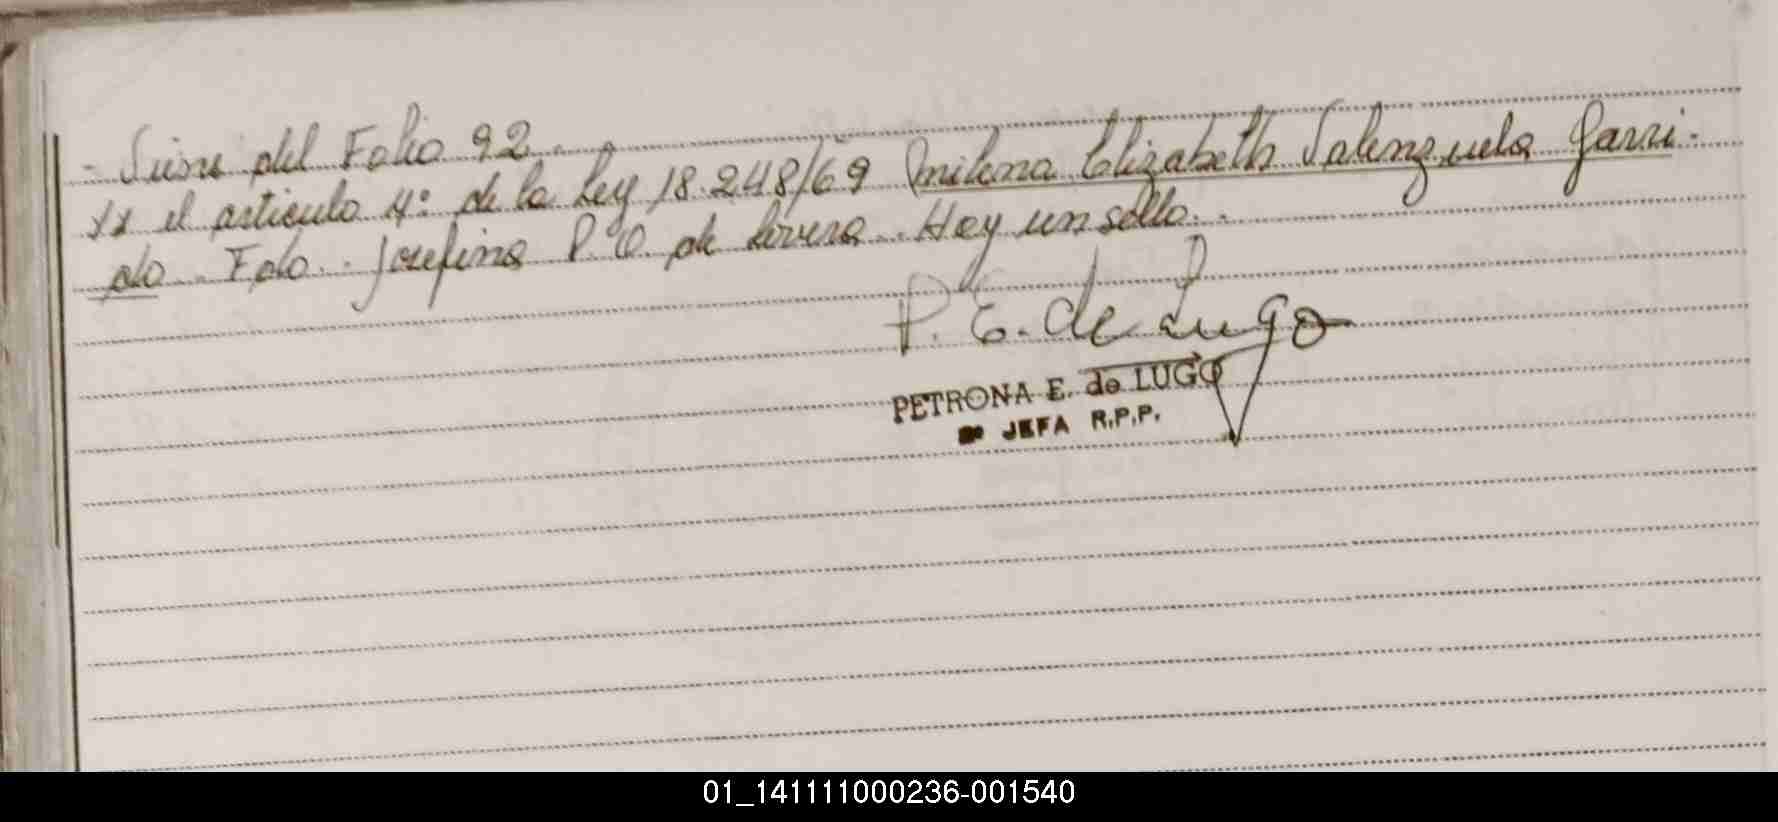 - Viene del Folio 92.
el articulo 4º de la Ley 18.248/69 Milena Elizabeth Valenzuela Garri-
do. Fdo. Josefina P. O. de Rivera. Hay un sello.
P. E. de Lugo
PETRONA E. de LUGO
JEFA R.P.P.
01_141111000236-001540